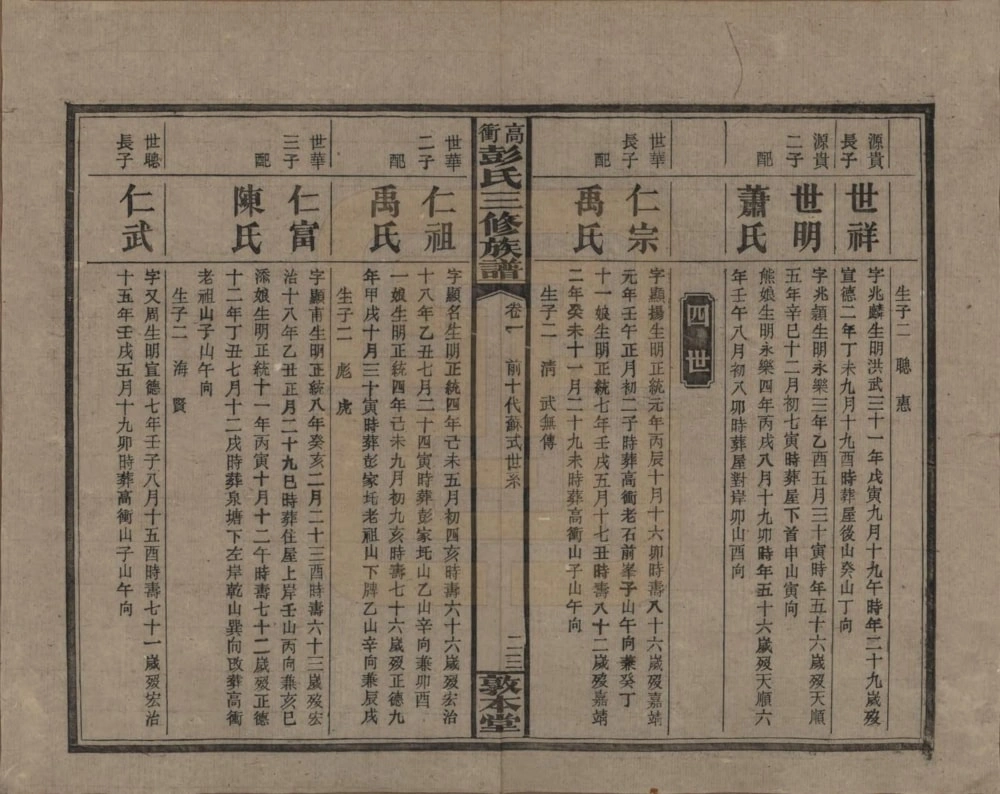 生子二 聰 惠
源貴長子
世祥
字兆麟生明洪武三十一年戊寅九月十九午時年二十九歲歿
宣德二年丁未九月十九酉時葬屋後山癸山丁向
源貴二子
世明
字兆顯生明永樂三年乙酉五月三十寅時年五十六歲歿天順
五年辛巳十二月初七寅時葬屋下首申山寅向
配
蕭氏
熊娘生明永樂四年丙戌八月十九卯時年五十六歲歿天順六
年壬午八月初八卯時葬屋對岸卯山酉向
四世
世華長子
仁宗
字顯揚生明正統元年丙辰十月十六卯時壽八十六歲歿嘉靖
元年壬午正月初二子時葬高衝老石前峯子山午向兼癸丁
配
禹氏
十一娘生明正統七年壬戌五月十七丑時壽八十二歲歿嘉靖
二年癸未十一月二十九未時葬高衝山子山午向
生子二 清 武無傳
高衝彭氏三修族譜
卷一 前十代蘇式世系
二三
敦本堂
世華二子
仁祖
字顯名生明正統四年己未五月初四亥時壽六十六歲歿宏治
十八年乙丑七月二十四寅時葬彭家圫山乙山辛向兼卯酉
配
禹氏
一娘生明正統四年己未九月初九亥時壽七十六歲歿正德九
年甲戌十月三十寅時葬彭家圫老祖山下牌乙山辛向兼辰戌
生子二 彪 虎
世華三子
仁富
字顯南生明正統八年癸亥二月二十三酉時壽六十三歲歿宏
治十八年乙丑正月二十九巳時葬住屋上岸壬山丙向兼亥巳
配
陳氏
添娘生明正統十一年丙寅十月十二午時壽七十二歲歿正德
十二年丁丑七月十二戌時葬泉塘下左岸乾山巽向改葬高衝
老祖山子山午向
生子二 海 賢
世聰長子
仁武
字又周生明宣德七年壬子八月十五酉時壽七十一歲歿宏治
十五年壬戌五月十九卯時葬高衝山子山午向